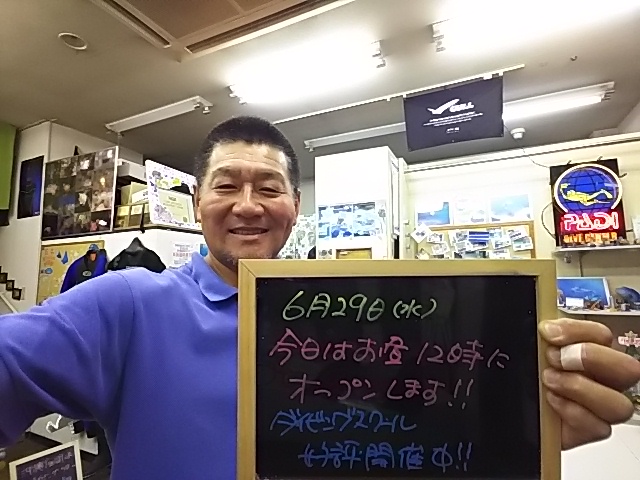 GULL
PADI
6月29日(水)
今日はお昼12時に
オープンします!!
ダイビングスクール
好評開催中!!